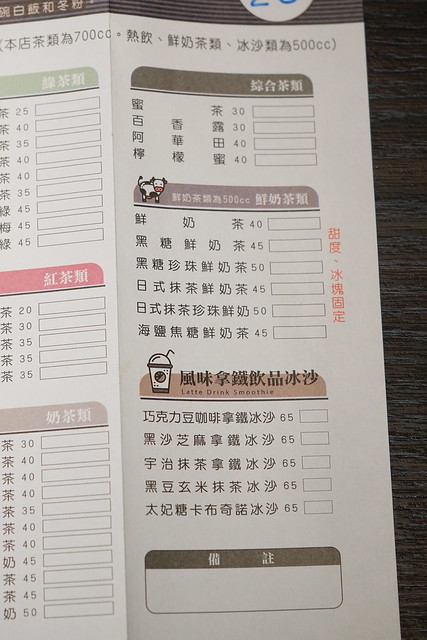 碗白飯和冬粉。
(本店茶類為700cc。熱飲、鮮奶茶類、冰沙類為500cc)
綠茶類
茶 25
茶 40
茶 35
茶 40
茶 40
茶 35
綠 45
梅 45
綠 45
紅茶類
茶 20
茶 30
茶 35
茶 35
茶 35
奶茶類
茶 30
茶 40
茶 40
茶 40
茶 35
茶 40
茶 40
奶 45
茶 45
茶 45
奶 50
綜合茶類
蜜茶 30
百香露 30
阿華田 40
檸檬蜜 40
鮮奶茶類為500cc 鮮奶茶類
鮮奶茶 40
黑糖鮮奶茶 45
黑糖珍珠鮮奶茶 50
日式抹茶鮮奶茶 45
日式抹茶珍珠鮮奶 50
海鹽焦糖鮮奶茶 45
甜度、冰塊固定
風味拿鐵飲品冰沙
Latte Drink Smoothie
巧克力豆咖啡拿鐵冰沙 65
黑沙芝麻拿鐵冰沙 65
宇治抹茶拿鐵冰沙 65
黑豆玄米抹茶冰沙 65
太妃糖卡布奇諾冰沙 65
備註